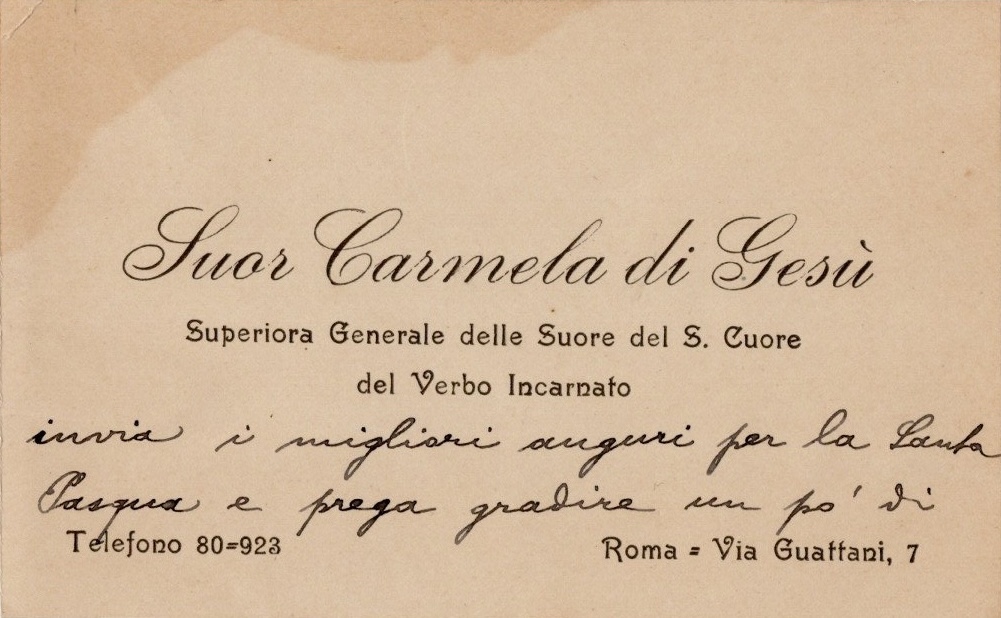 Suor Carmela di Gesù
Superiora Generale delle Suore del S. Cuore
del Verbo Incarnato
invia i migliori auguri per la Santa
Pasqua e prega gradire un po' di
Telefono 80=923 Roma = Via Guattani, 7